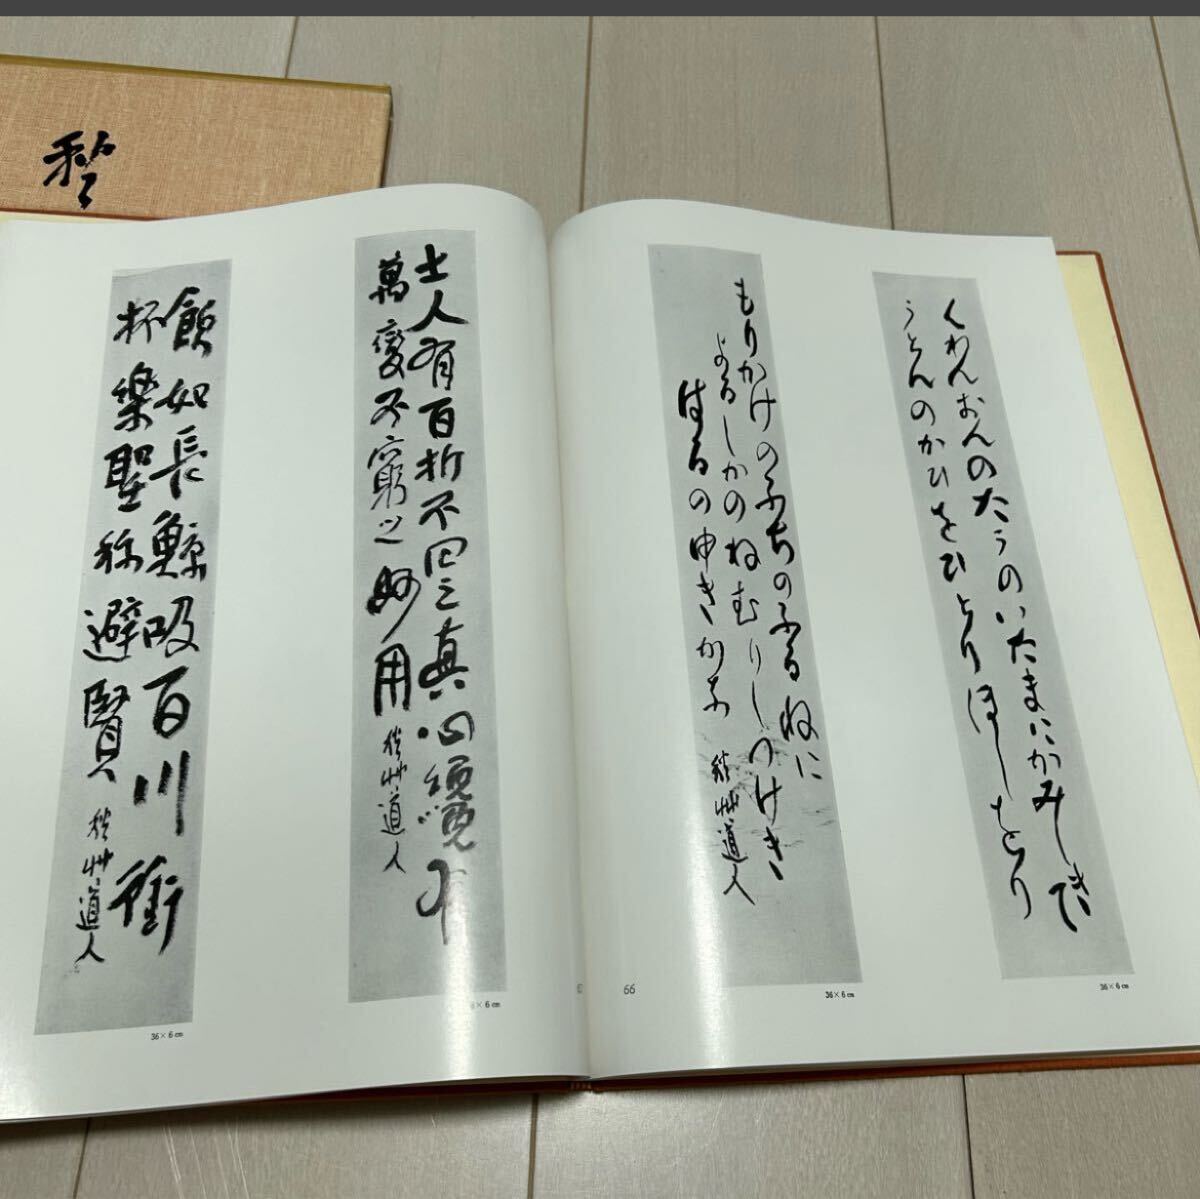 くわんおんのたうのいたまにかみしきて
うとんのかひをひとりほしをり
36×6㎝
もりかけのふちのふるねに
よるしかのねむりしつけき
はるのゆきかな
秋艸道人
36×6㎝
66
士人有百折不回之真心纔有
萬變不窮之妙用
秋艸道人
×6㎝
飲如長鯨吸百川銜
杯樂聖称避賢
秋艸道人
36×6㎝